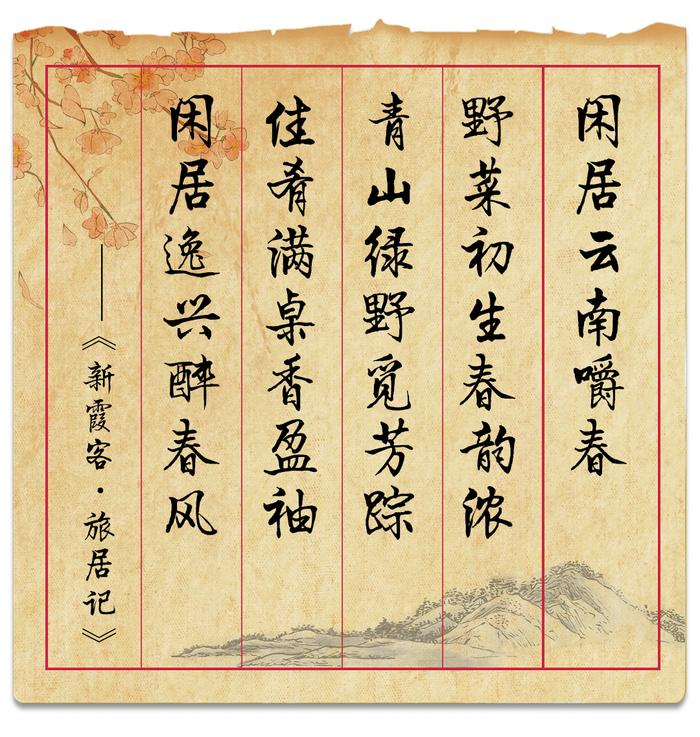 闲居云南嚼春
野菜初生春韵浓
青山绿野觅芳踪
佳肴满桌香盈袖
闲居逸兴醉春风
——《新霞客·旅居记》